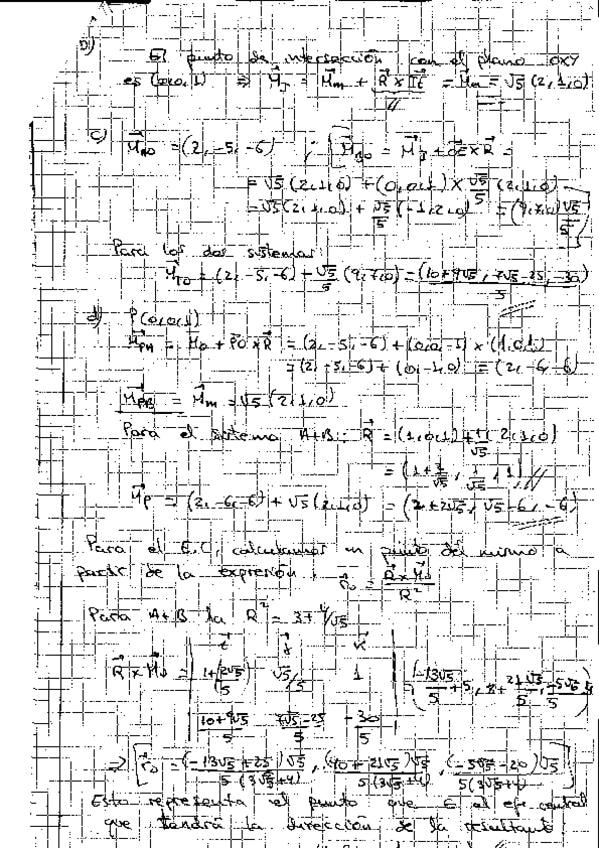 b)
El punto de intersección con el plano OXY
es (0,0,1) ⇒ M⃗_I = M⃗m + R⃗ × I⃗t = M⃗m = √5 (2,1,0)
c) M⃗AO = (2,-5,-6) ; M⃗BO = M⃗I + OE × R⃗ =
= √5 (2,1,0) + (0,0,1) × √5/5 (2,1,0)
= √5 (2,1,0) + √5/5 (-1,2,0) = (9,7,0) √5/5
Para los dos sistemas
M⃗TO = (2,-5,-6) + √5/5 (9,7,0) = (10+9√5, 7√5-25, -30)/5
d) P(0,0,1)
M⃗PA = M⃗O + PO × R⃗ = (2,-5,-6) + (0,0,-1) × (1,0,1)
= (2,-5,-6) + (0,-1,0) = (2,-6,-6)
M⃗PB = M⃗m = √5 (2,1,0)
Para el sistema A+B: R⃗ = (1,0,1) + 1/√5 (2,1,0)
= (1 + 2/√5, 1/√5, 1)
M⃗P = (2,-6,-6) + √5 (2,1,0) = (2+2√5, √5-6, -6)
Para el E.C. calculamos un punto del mismo a
partir de la expresión: r⃗o = R⃗ × M⃗o / R²
Para A+B la R² = 3 + 4/√5
i⃗ j⃗ k⃗
R⃗ × M⃗o = 1+2√5/5 √5/5 1 = (-13√5/5 + 5,
10+9√5/5 7√5-25/5 -30/5
⇒ r⃗o = (-13√5+25)√5/5(3√5+4), (40+21√5)√5/5(3√5+4), (-5√5-20)√5/5(3√5+4)
Esto representa el punto que ∈ al eje central
que tendrá la dirección de la resultante